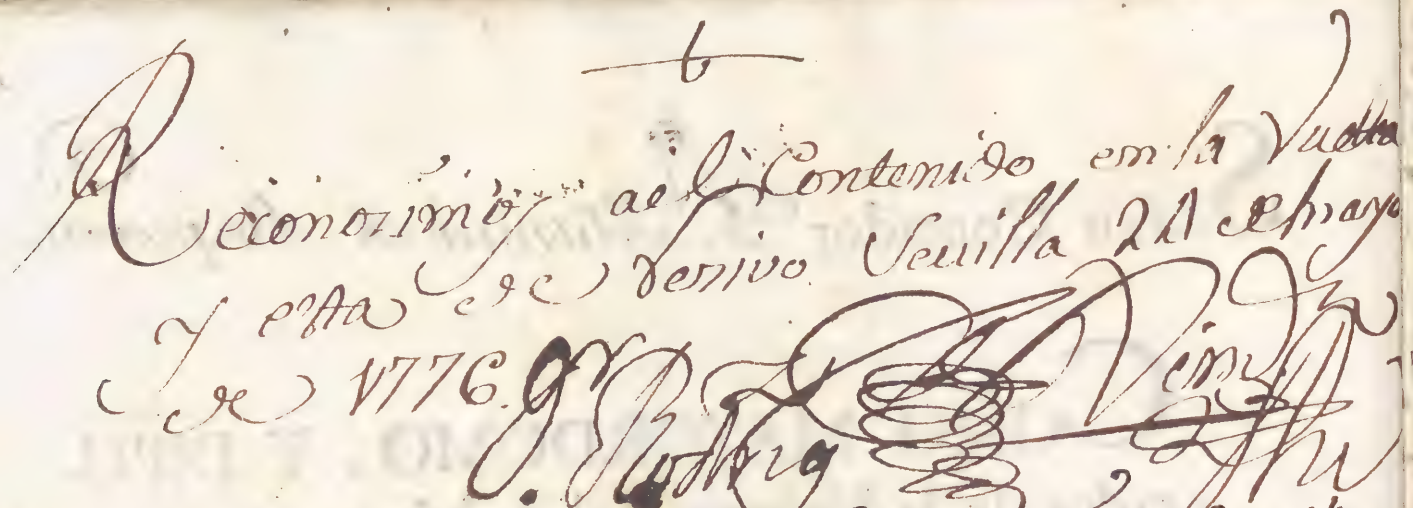 Reconozimos al Contenido en la Vuelta
y esta de rerivo. Sevilla 21 de mayo
de 1776.
Rodrig